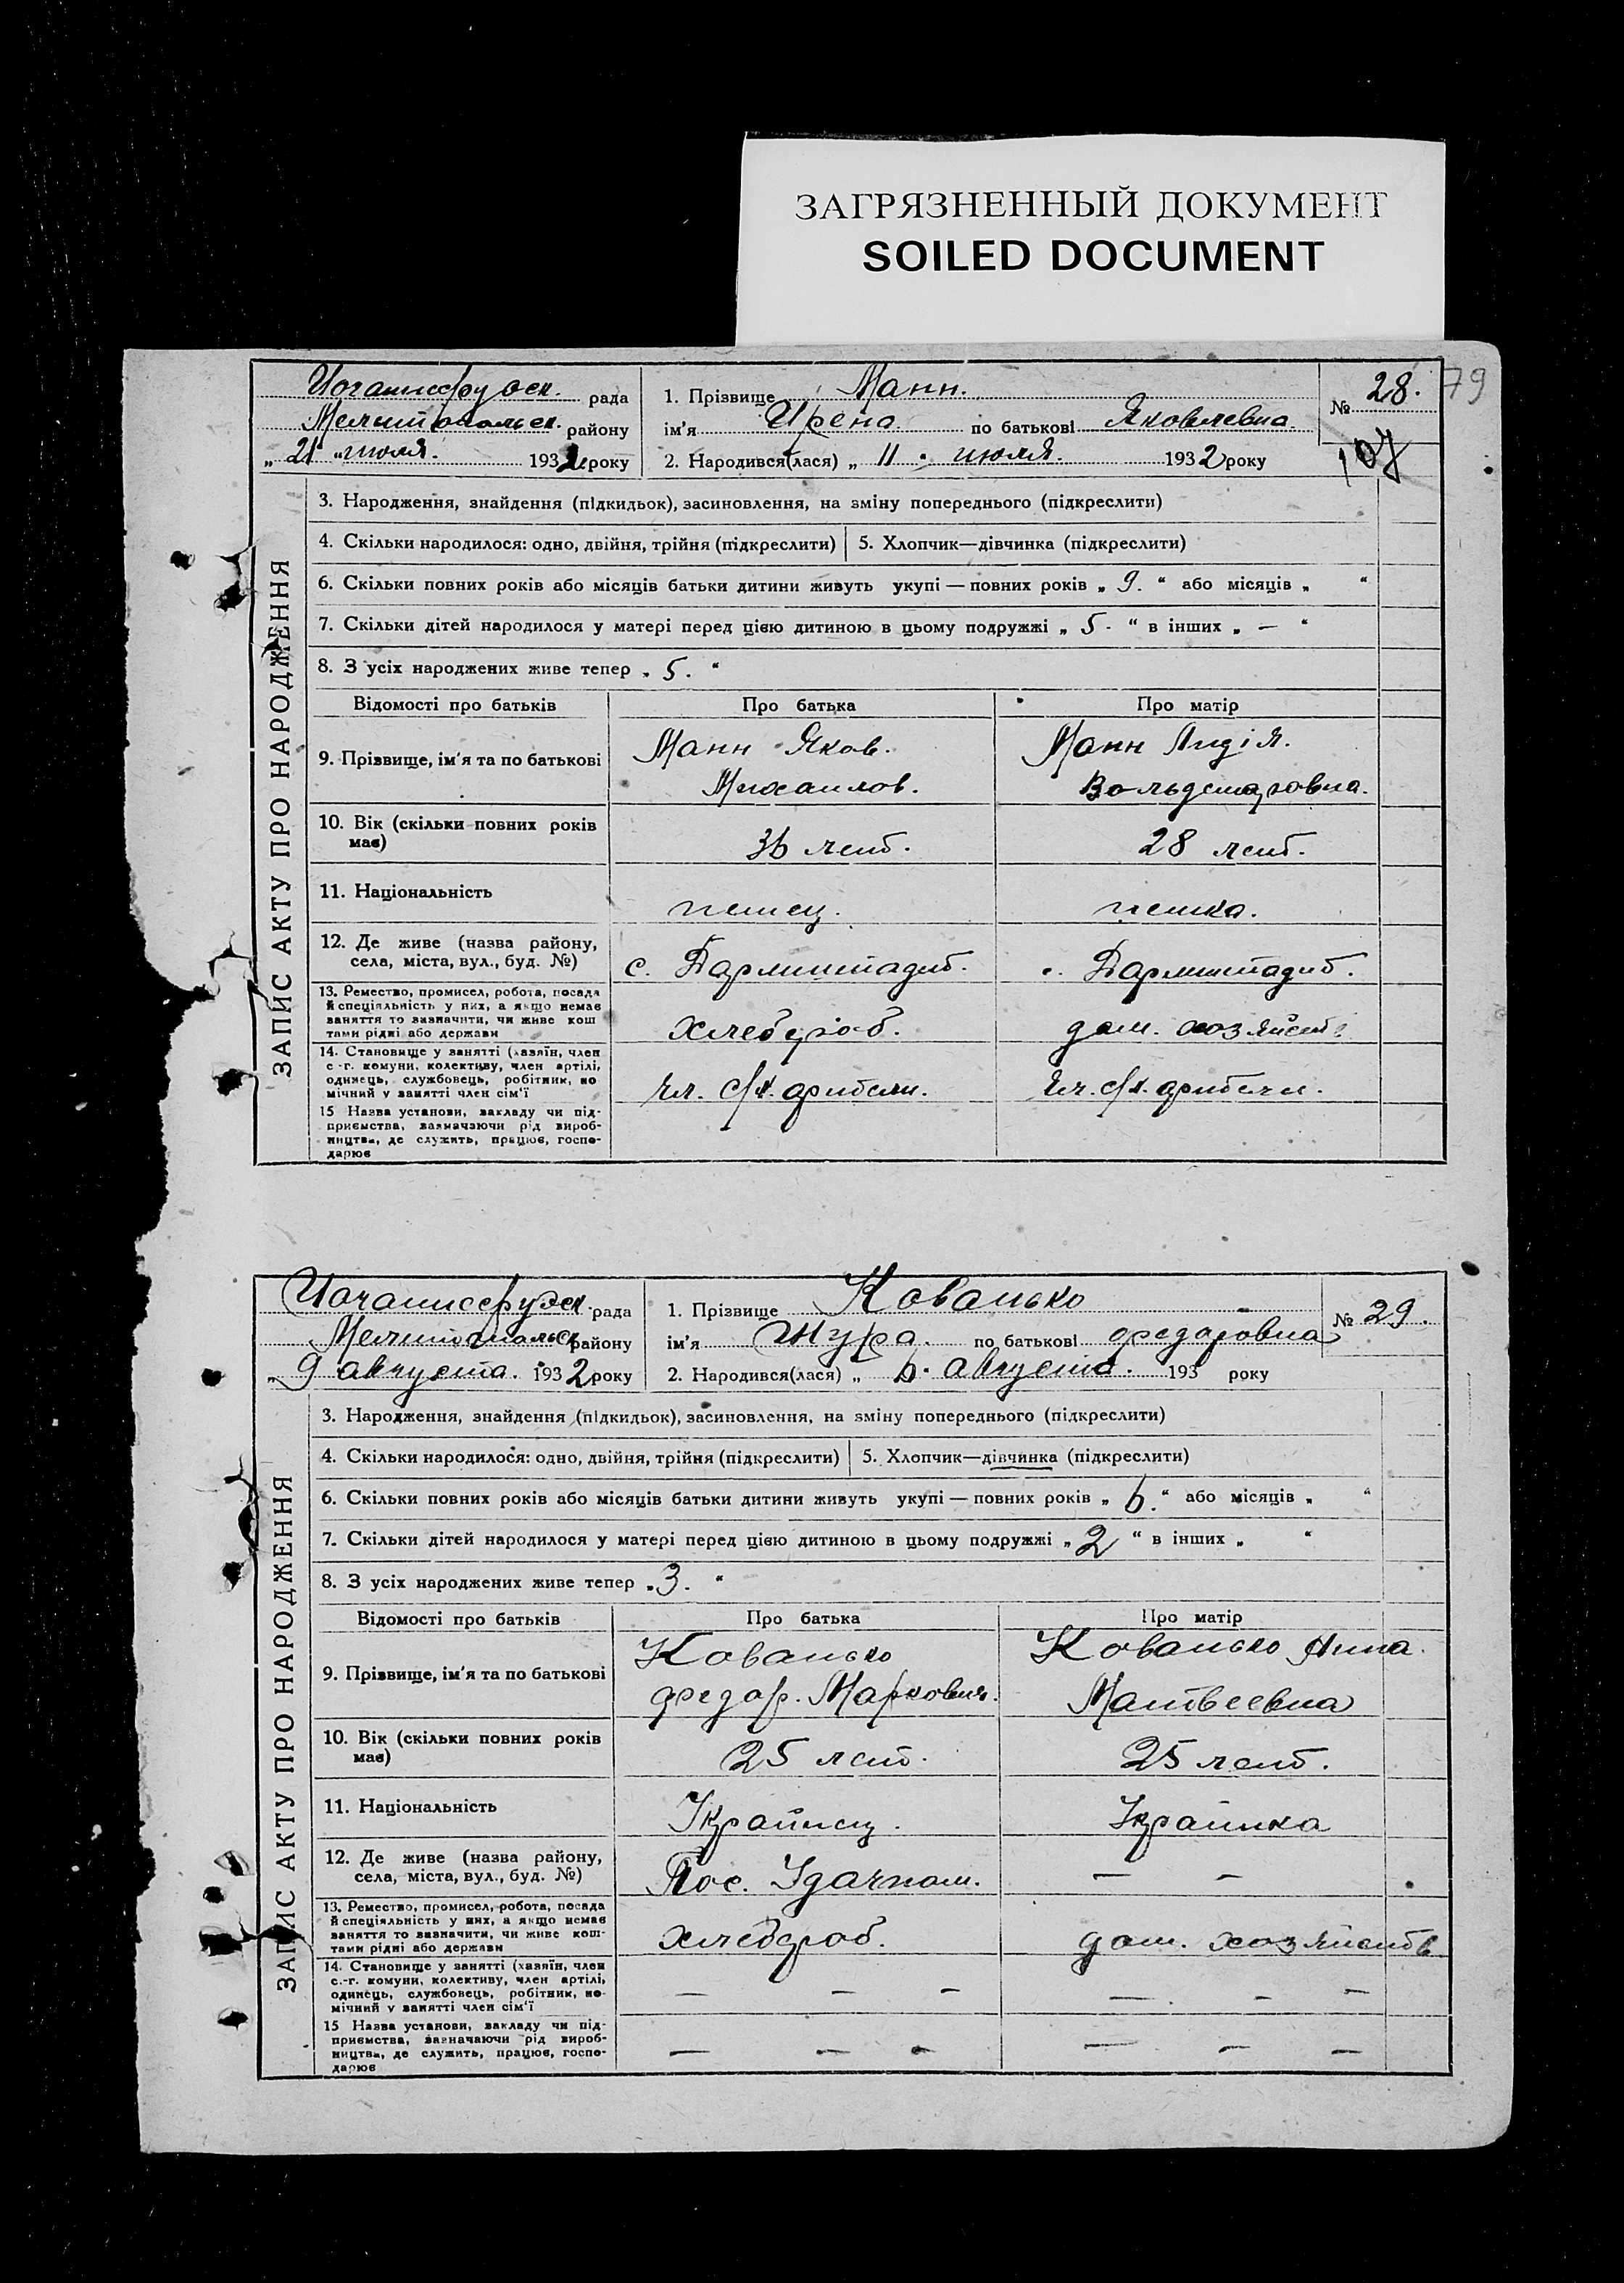 ЗАГРЯЗНЕННЫЙ ДОКУМЕНТ
SOILED DOCUMENT
79
Иоганнесруэск. рада
Мелитопольск. району
„21" июля. 1932 року
1. Прізвище Манн.
ім'я Ирена по батькові Яковлевна.
2. Народився(лася) „ 11 . июля. 1932 року
№ 28.
107
ЗАПИС АКТУ ПРО НАРОДЖЕННЯ
3. Народження, знайдення (підкидьок), засиновлення, на зміну попереднього (підкреслити)
4. Скільки народилося: одно, двійня, трійня (підкреслити) 5. Хлопчик—дівчинка (підкреслити)
6. Скільки повних років або місяців батьки дитини живуть укупі — повних років „ 9. “ або місяців „ “
7. Скільки дітей народилося у матері перед цією дитиною в цьому подружжі „ 5 - “ в інших „ — “
8. З усіх народжених живе тепер „ 5. “
Відомості про батьків Про батька Про матір
9. Прізвище, ім'я та по батькові
Манн Яков. Манн Лидія.
Михаилов. Вольдемаровна.
10. Вік (скільки повних років має) 36 лет. 28 лет.
11. Національність немец. немка.
12. Де живе (назва району,
села, міста, вул., буд. №) с. Дармштадт. с. Дармштадт.
13. Ремество, промисел, робота, посада
й спеціяльність у них, а якщо немає
заняття то зазначити, чи живе кош
тами рідні або держави
хлебороб. дом. хозяйств
14. Становище у занятті (хазяїн, член
с.-г. комуни, колективу, член артілі,
одинець, службовець, робітник, по
мічний у занятті член сім'ї
чл. с/х. артели. чл. с/х. артели.
15 Назва установи, закладу чи під-
приємства, зазначаючи рід вироб-
ництва, де служить, працює, госпо-
дарює
рада
Мелитопольск району
„ 9 августа. 1932 року
1. Прізвище Кованько
ім'я Шура. по батькові Федоровна
2. Народився(лася) „ 6. августа. 193 року
№ 29.
ЗАПИС АКТУ ПРО НАРОДЖЕННЯ
3. Народження, знайдення (підкидьок), засиновлення, на зміну попереднього (підкреслити)
4. Скільки народилося: одно, двійня, трійня (підкреслити) 5. Хлопчик—дівчинка (підкреслити)
6. Скільки повних років або місяців батьки дитини живуть укупі — повних років „ 6. “ або місяців „ “
7. Скільки дітей народилося у матері перед цією дитиною в цьому подружжі „ 2 “ в інших „ “
8. З усіх народжених живе тепер „ 3. “
Відомості про батьків Про батька Про матір
9. Прізвище, ім'я та по батькові
Кованько Кованько Анна.
Федор. Маркович. Матвеевна
10. Вік (скільки повних років має) 25 лет. 25 лет.
11. Національність Украинец. Украинка
12. Де живе (назва району,
села, міста, вул., буд. №) Пос. Удачном. — —
13. Ремество, промисел, робота, посада
й спеціяльність у них, а якщо немає
заняття то зазначити, чи живе кош-
тами рідні або держави
хлебороб. дом. хозяйств
14. Становище у занятті (хазяїн, член
с.-г. комуни, колективу, член артілі,
одинець, службовець, робітник, по-
мічний у занятті член сім'ї
— — — — — —
15 Назва установи, закладу чи під-
приємства, зазначаючи рід вироб-
ництва, де служить, працює, госпо-
дарює
— — — — — —